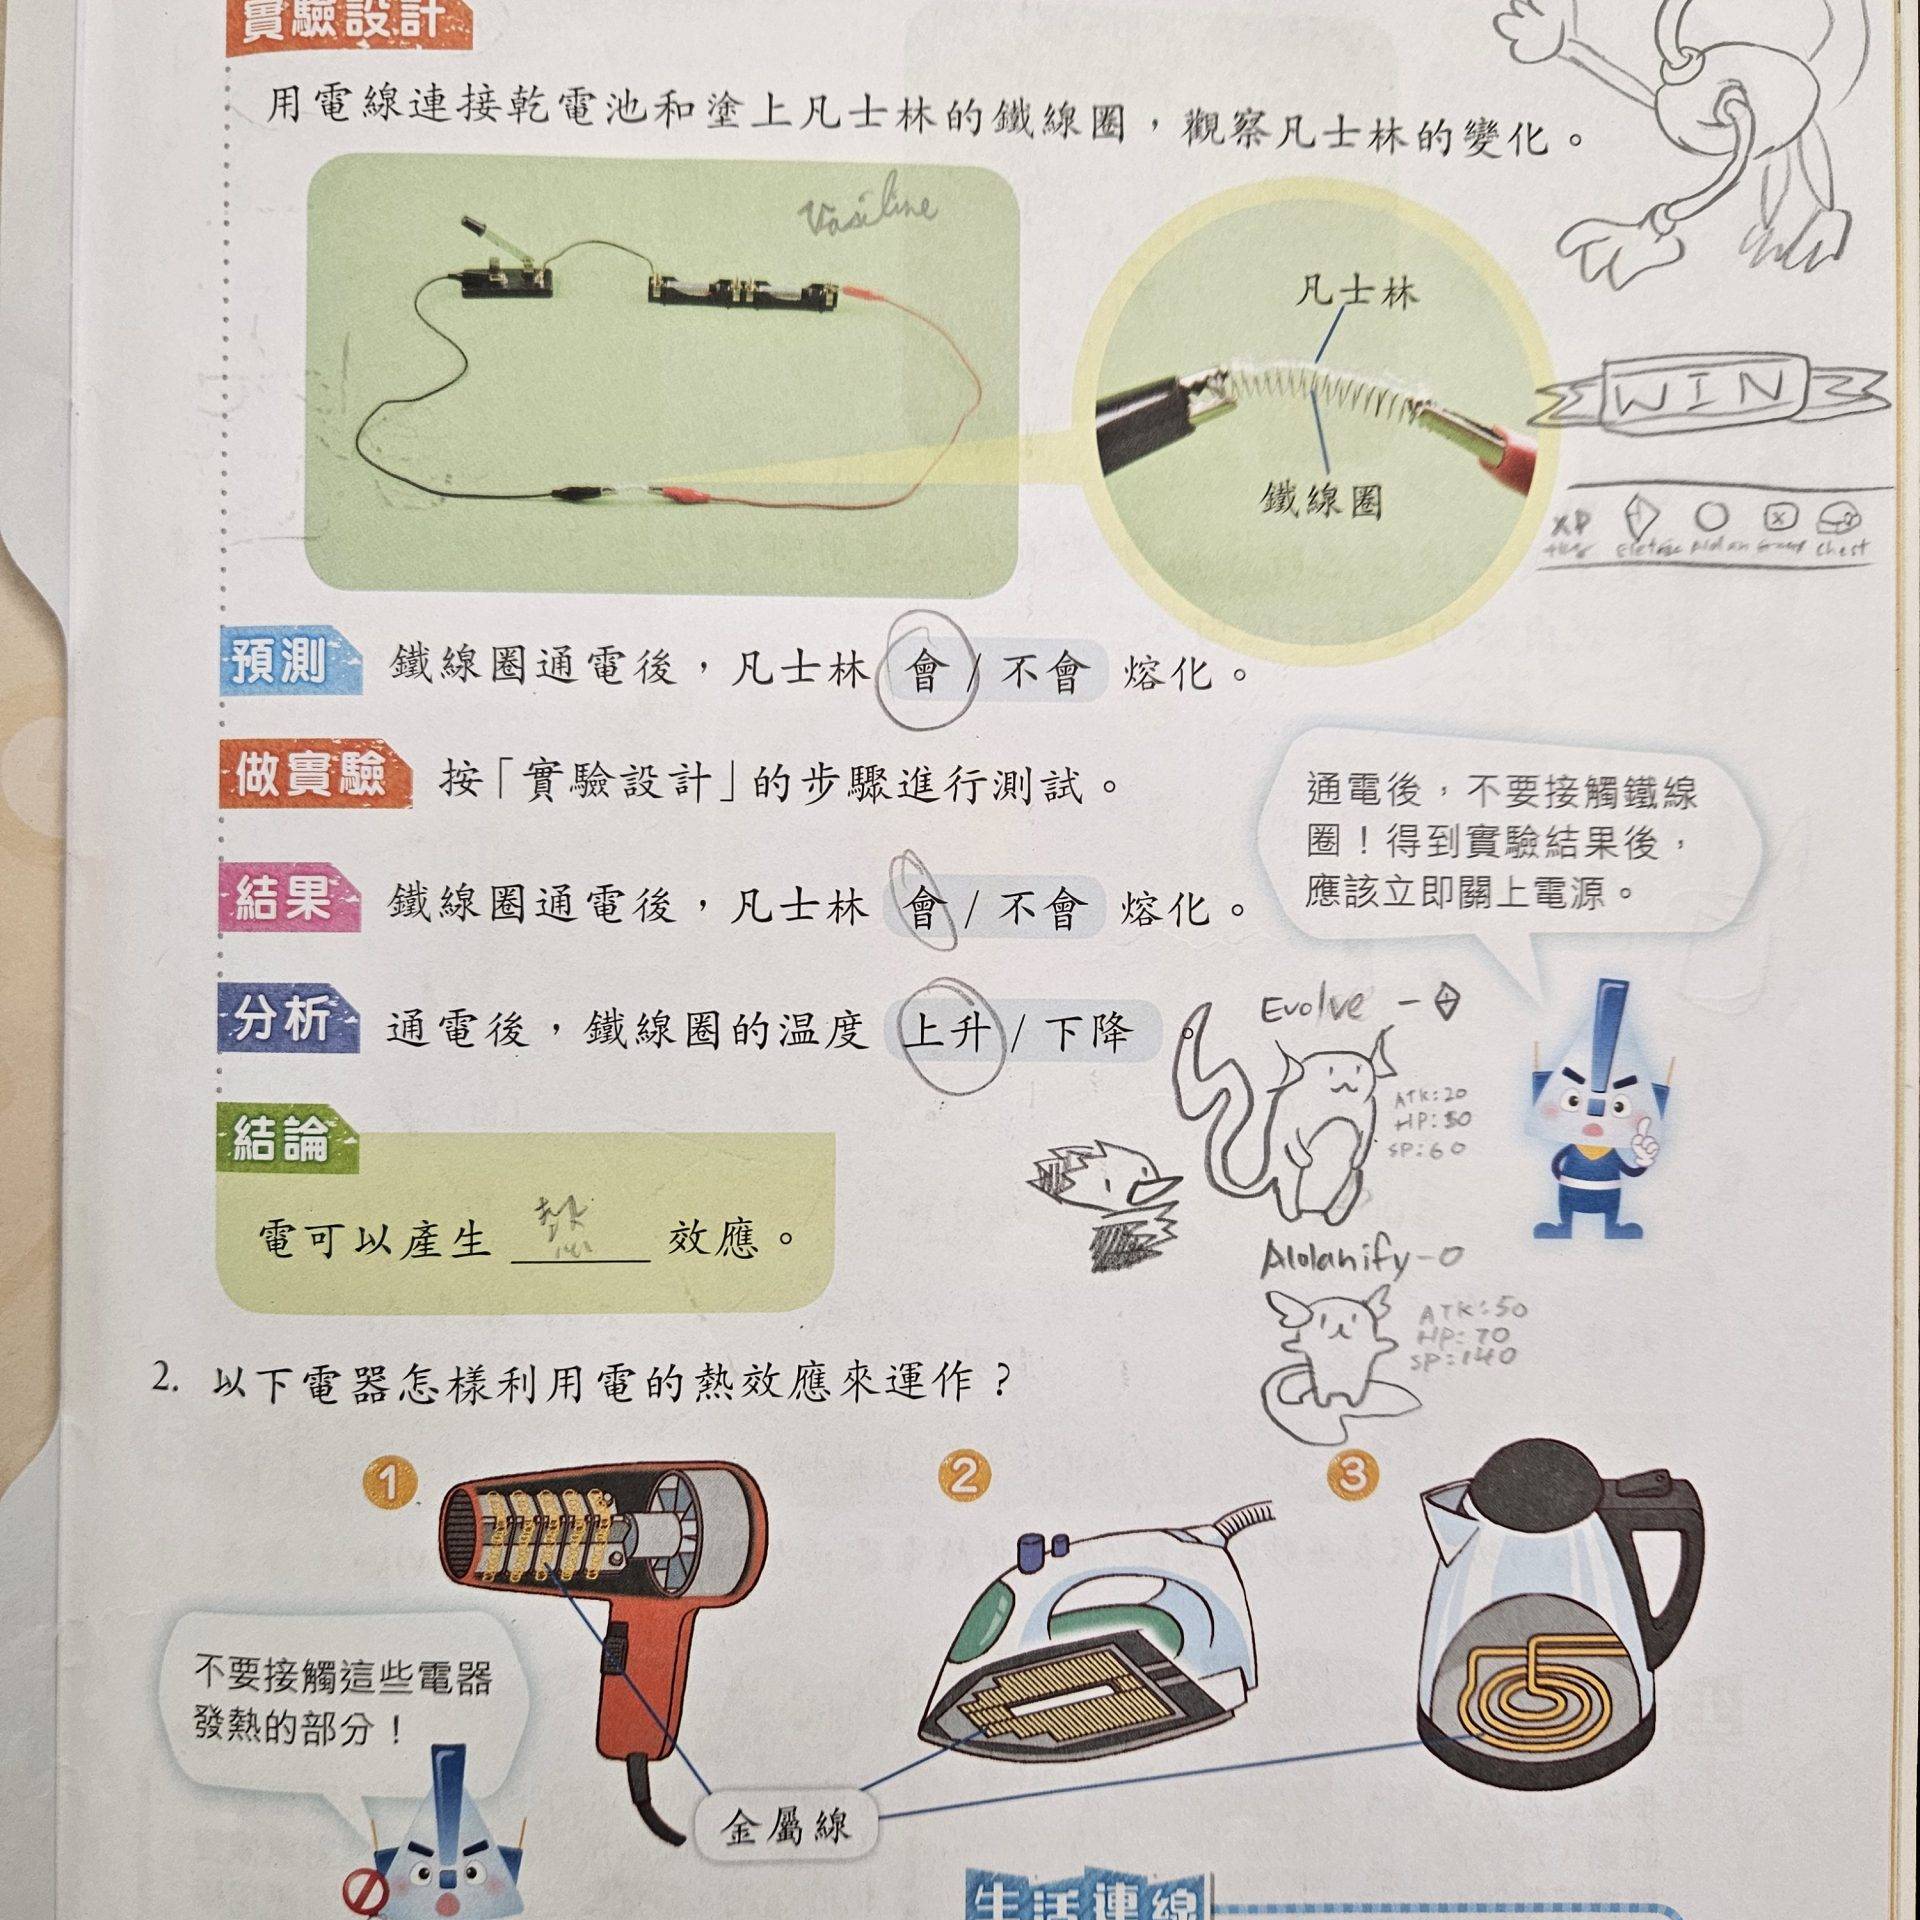 實驗設計
用電線連接乾電池和塗上凡士林的鐵線圈，觀察凡士林的變化。
Vasiline
凡士林
鐵線圈
WIN
XP
Chest
預測 鐵線圈通電後，凡士林 會 / 不會 熔化。
做實驗 按「實驗設計」的步驟進行測試。
通電後，不要接觸鐵線
圈！得到實驗結果後，
應該立即關上電源。
結果 鐵線圈通電後，凡士林 會 / 不會 熔化。
分析 通電後，鐵線圈的温度 上升 / 下降 。
Evolve -
ATK:20
HP:50
SP:60
結論
電可以產生 熱 效應。
Alolanify-O
ATK:50
HP:70
SP:140
2. 以下電器怎樣利用電的熱效應來運作？
1
2
3
不要接觸這些電器
發熱的部分！
金屬線
生活連線